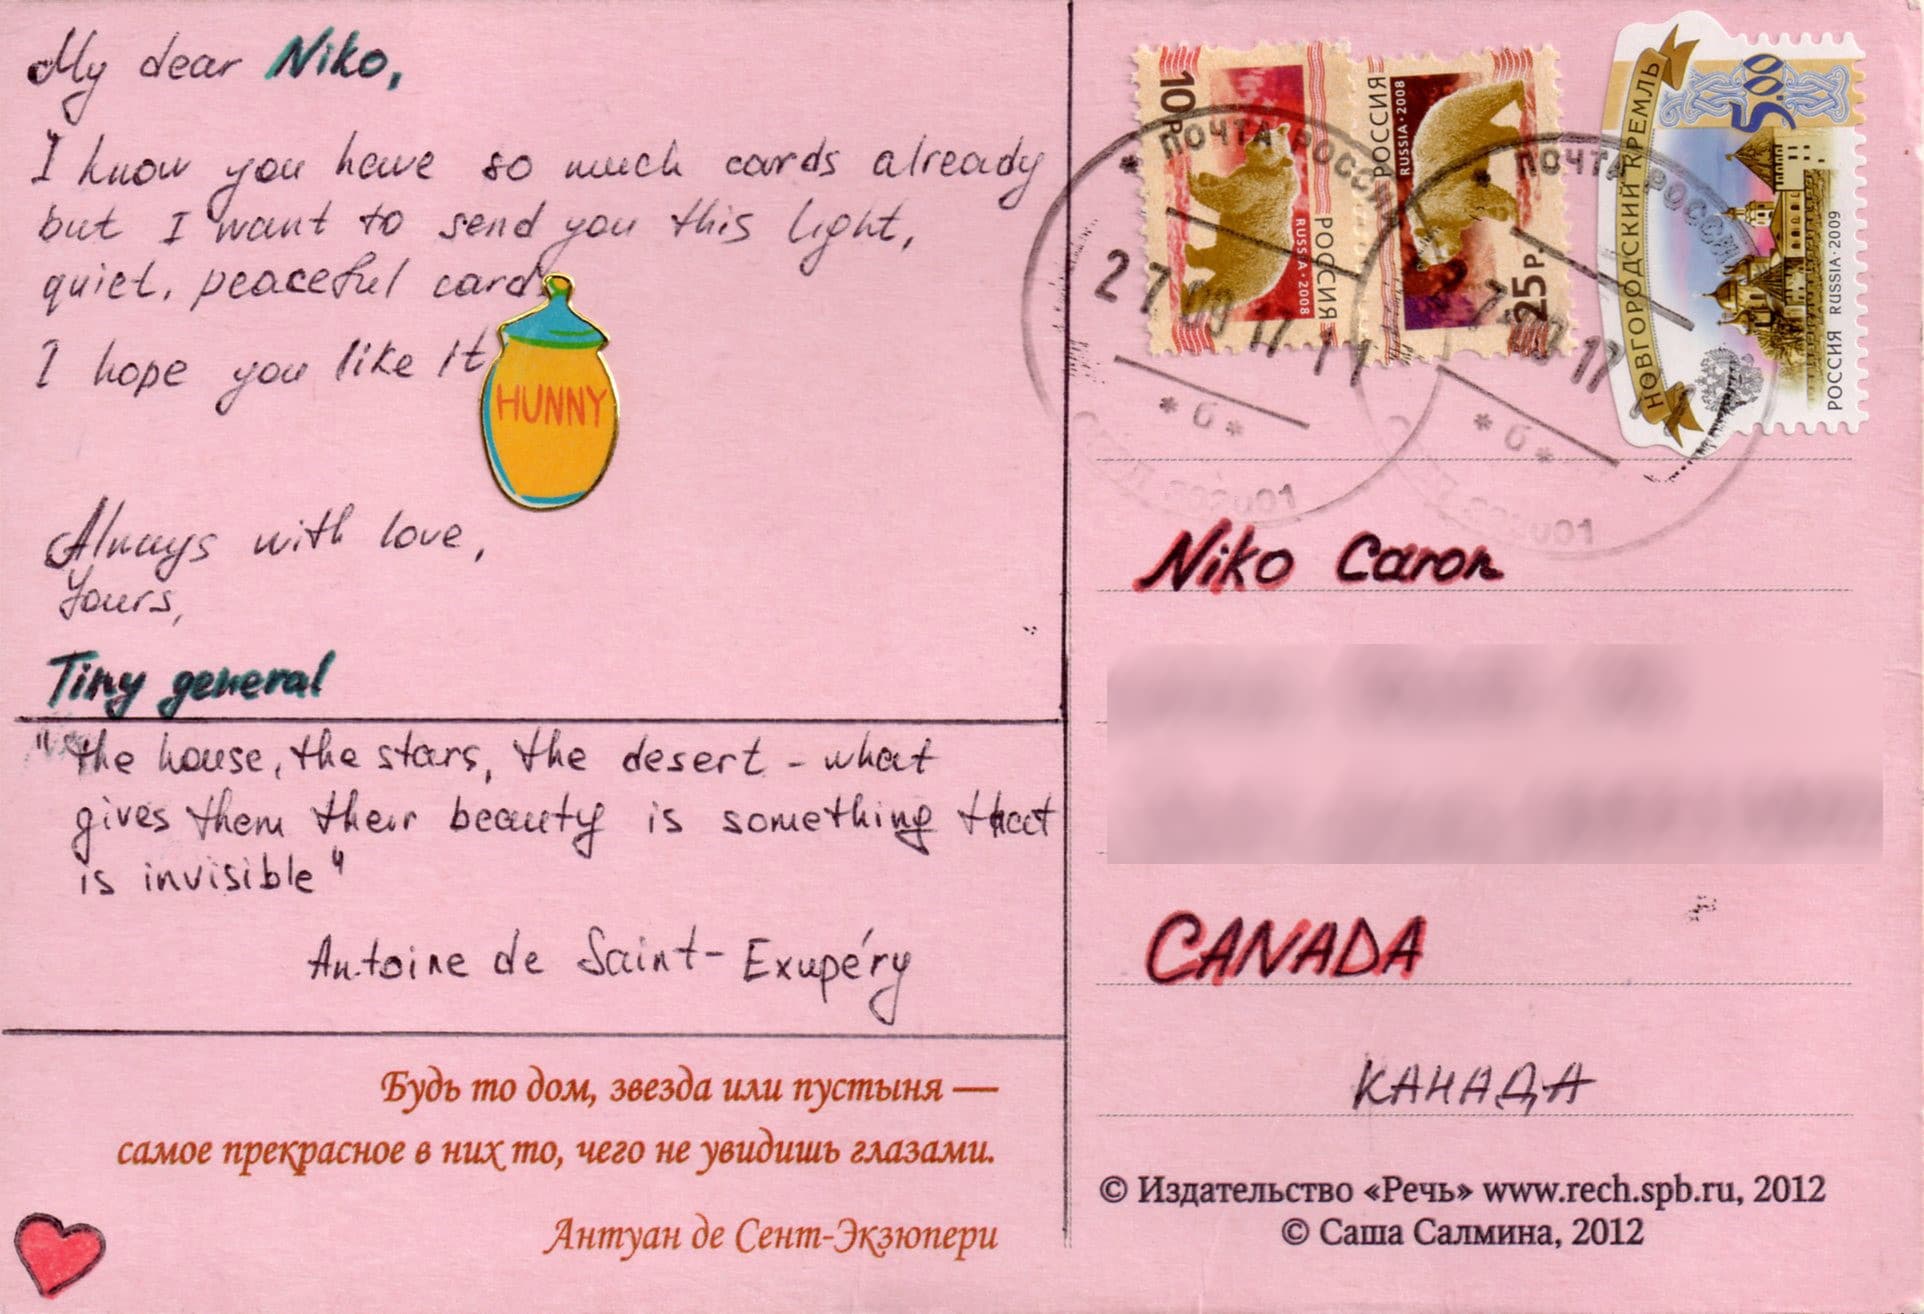 My dear Niko,
I know you have so much cards already
but I want to send you this light,
quiet, peaceful card.
I hope you like it
HUNNY
Always with love,
Yours,
Tiny general
"the house, the stars, the desert - what
gives them their beauty is something that
is invisible"
Antoine de Saint-Exupéry
Будь то дом, звезда или пустыня —
самое прекрасное в них то, чего не увидишь глазами.
Антуан де Сент-Экзюпери
10Р
РОССИЯ
RUSSIA·2008
РОССИЯ
RUSSIA·2008
25Р
НОВГОРОДСКИЙ КРЕМЛЬ
5.00
РОССИЯ RUSSIA·2009
* ПОЧТА РОССИИ
27 09 17 11
* б *
* ПОЧТА РОССИИ
* б *
Niko Caron
CANADA
КАНАДА
© Издательство «Речь» www.rech.spb.ru, 2012
© Саша Салмина, 2012